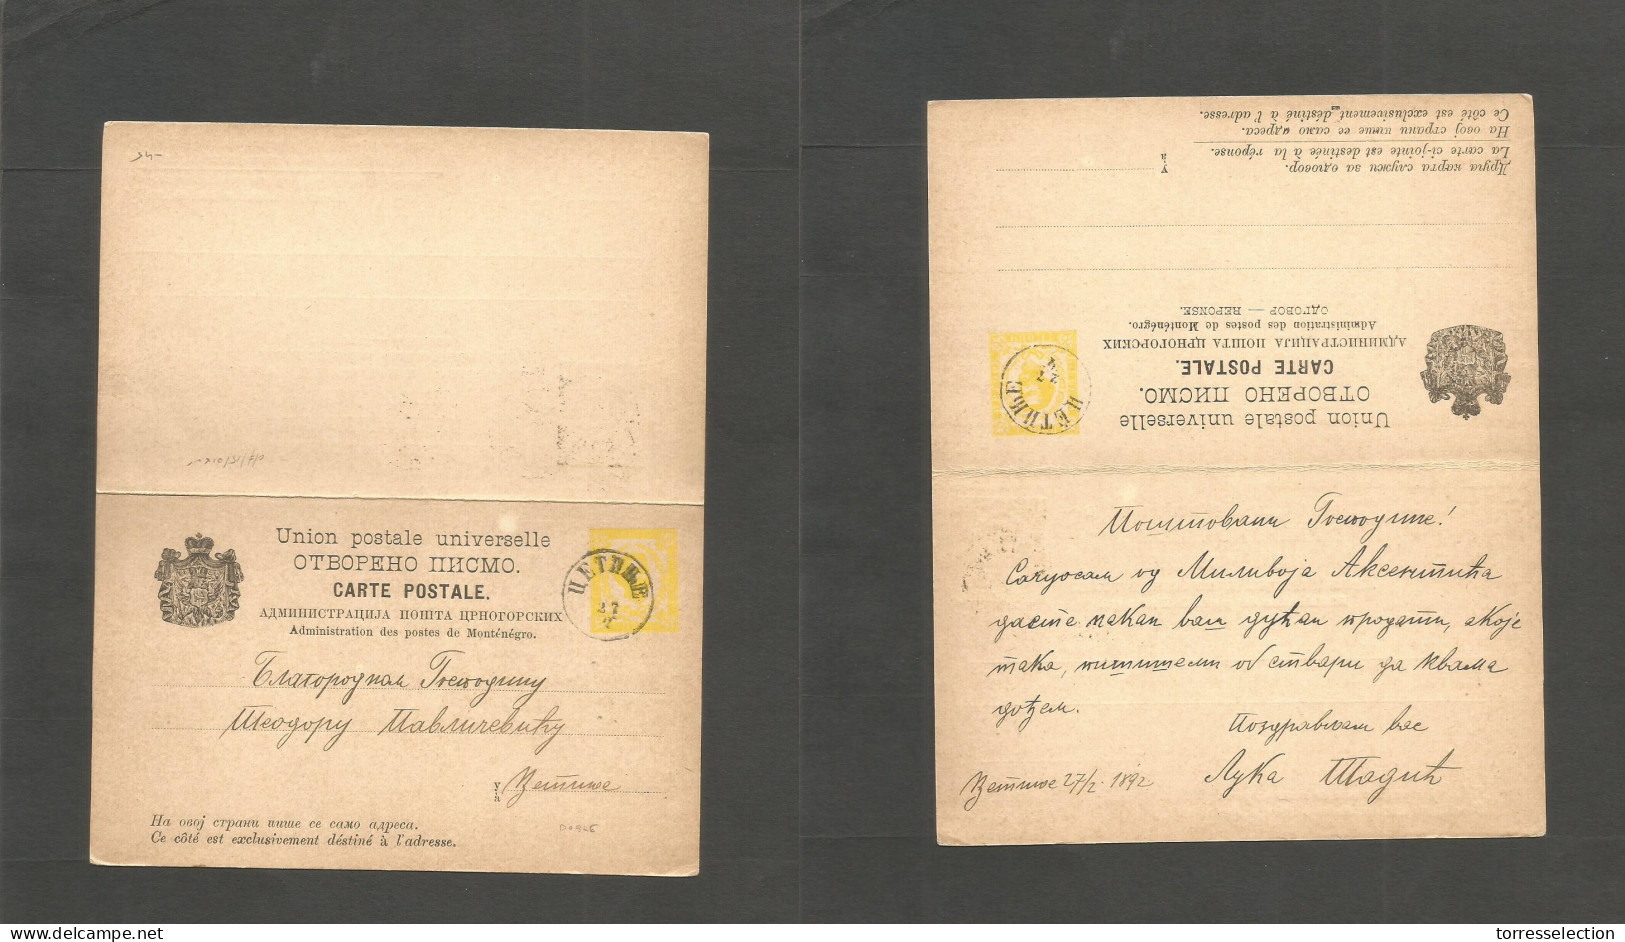 Union postale universelle
ОТВОРЕНО ПИСМО.
CARTE POSTALE.
АДМИНИСТРАЦИЈА ПОШТА ЦРНОГОРСКИХ
Administration des postes de Monténégro.
ЦЕТИЊЕ
27
Благородном Господину
Теодору Павличевићу
у
à
Цетиње
На овој страни пише се само адреса.
Ce côté est exclusivement déstiné à l'adresse.
Друга карта служи за одговор.
La carte ci-jointe est destinée à la réponse.
На овој страни пише се само адреса.
Ce côté est exclusivement déstiné à l'adresse.
у
à
Union postale universelle
ОТВОРЕНО ПИСМО.
CARTE POSTALE.
АДМИНИСТРАЦИЈА ПОШТА ЦРНОГОРСКИХ
Administration des postes de Monténégro.
ОДГОВОР — REPONSE.
ЦЕТИЊЕ
27
Поштовани Господине!
Сачуосам од Миливоја Аксентића
дасте накан ваш дућан продати, акоје
тако, пишитеми об ствари да квама
дођем.
Поздрављам вас
Лука Тадић
Цетиње 27/2 1892
torresselection